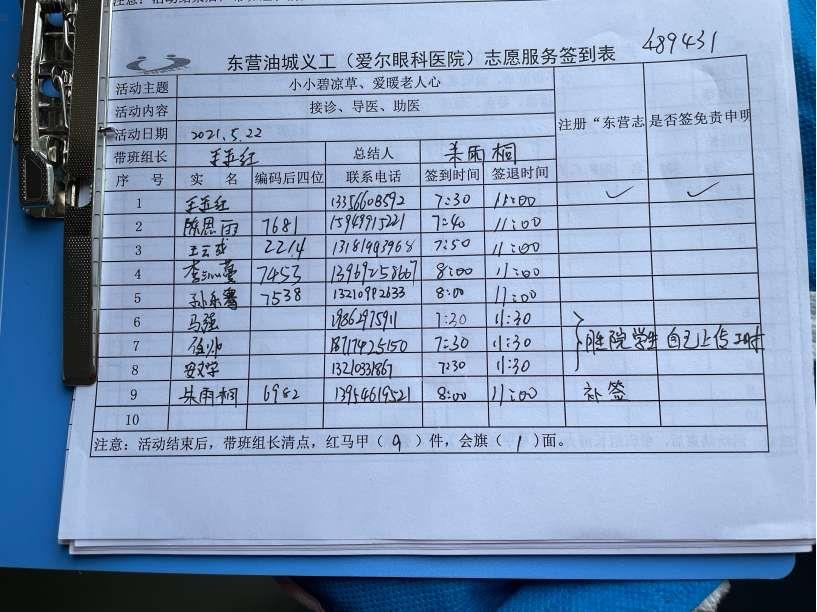 东营油城义工（爱尔眼科医院）志愿服务签到表 489431
活动主题 小小碧凉草、爱暖老人心
活动内容 接诊、导医、助医
活动日期 2021.5.22 注册“东营志 是否签免责申明
带班组长 总结人 朱雨桐
序 号 实 名 编码后四位 联系电话 签到时间 签退时间
1 13356608592 7:30 11:00 ✓ ✓
2 陈思雨 7681 15949915221 7:40 11:00
3 2214 13181993968 7:50 11:00
4 7453 13969258667 8:00 11:00
5 7538 13210992633 8:00 11:00
6 马强 19862975911 7:30 11:30
7 18717425150 7:30 11:30 医院学生自己上传工时
8 安文学 13210331867 7:30 11:30
9 朱雨桐 6982 13954619521 8:00 11:00 补签
10
注意：活动结束后，带班组长清点，红马甲（9）件，会旗（1）面。